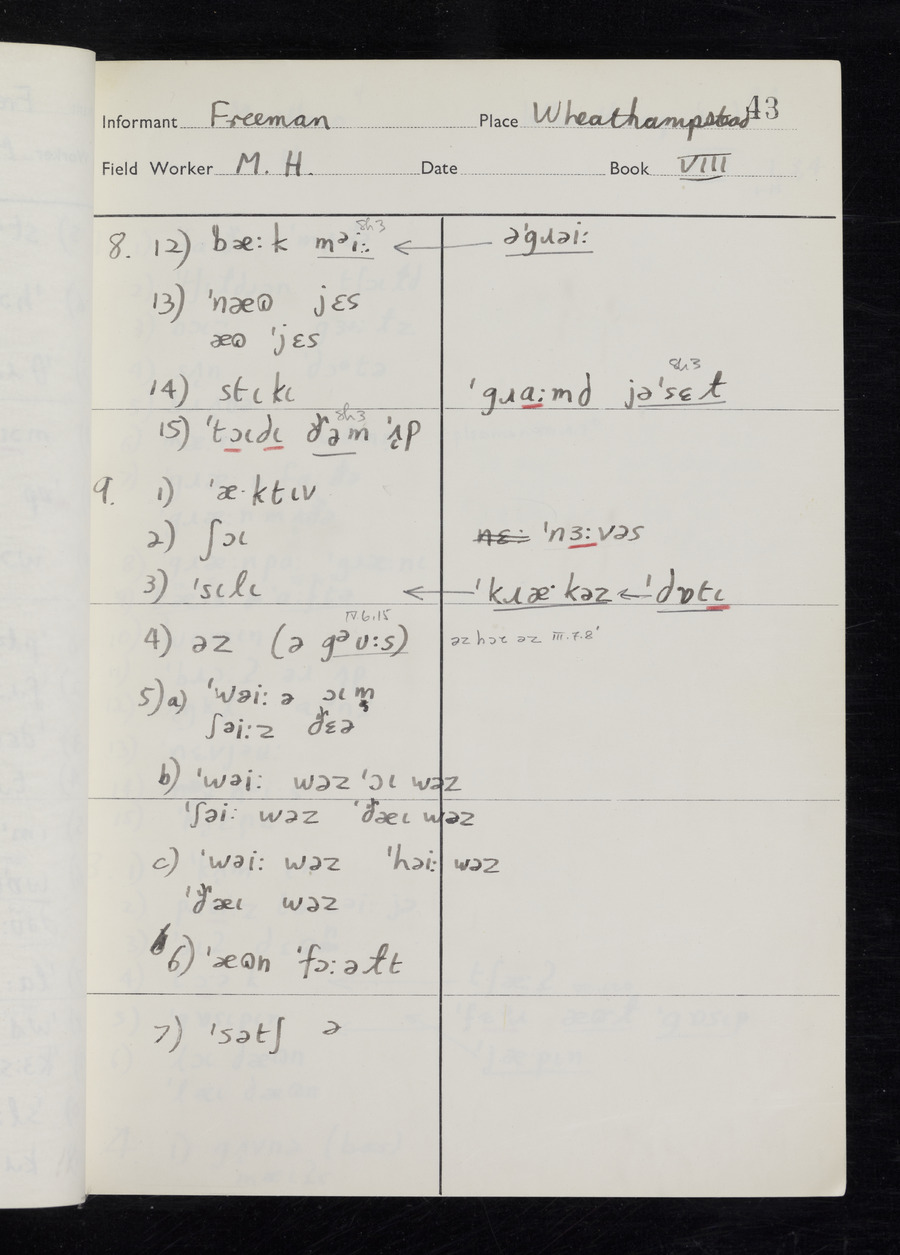 43
Informant Freeman Place Wheathampstead
Field Worker M. H. Date Book VIII
8. 12) bæːk mᵊiː sh3 ← əˈɡɹəiː
13) ˈnæɷ jɛs
æɷ ˈjɛs
14) stɩkɩ ˈɡɹaːmd jəˈsɛt sh3
15) ˈtɔɩdɩ ðəm sh3 ˈʌp
9. 1) ˈæ·ktɩv
2) ʃɔɩ nɛː ˈnɜːvəs
3) ˈsɩlɩ ← ˈkɹæ·kəz ← ˈdɒtɩ
4) əz (ə ɡᵊʋːs) IV 6.15 əz hɔt əz III.7.8'
5) a) ˈwəiː ə ɔɩ m
ʃəiːz ðɛə
b) ˈwəiː wəz ˈɔɩ wəz
ˈʃəiː wəz ˈðæɩ wəz
c) ˈwəiː wəz ˈhəiː wəz
ˈðæɩ wəz
6) ˈæɷn ˈfɔːəɫt
7) ˈsətʃ ə